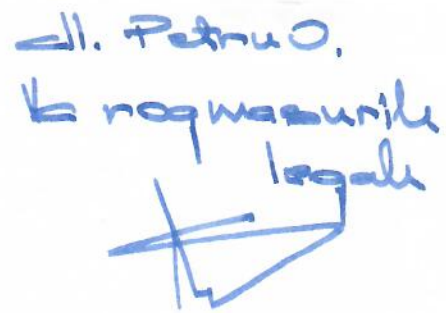 dl. Petru O.
Vă rog masurile
legale